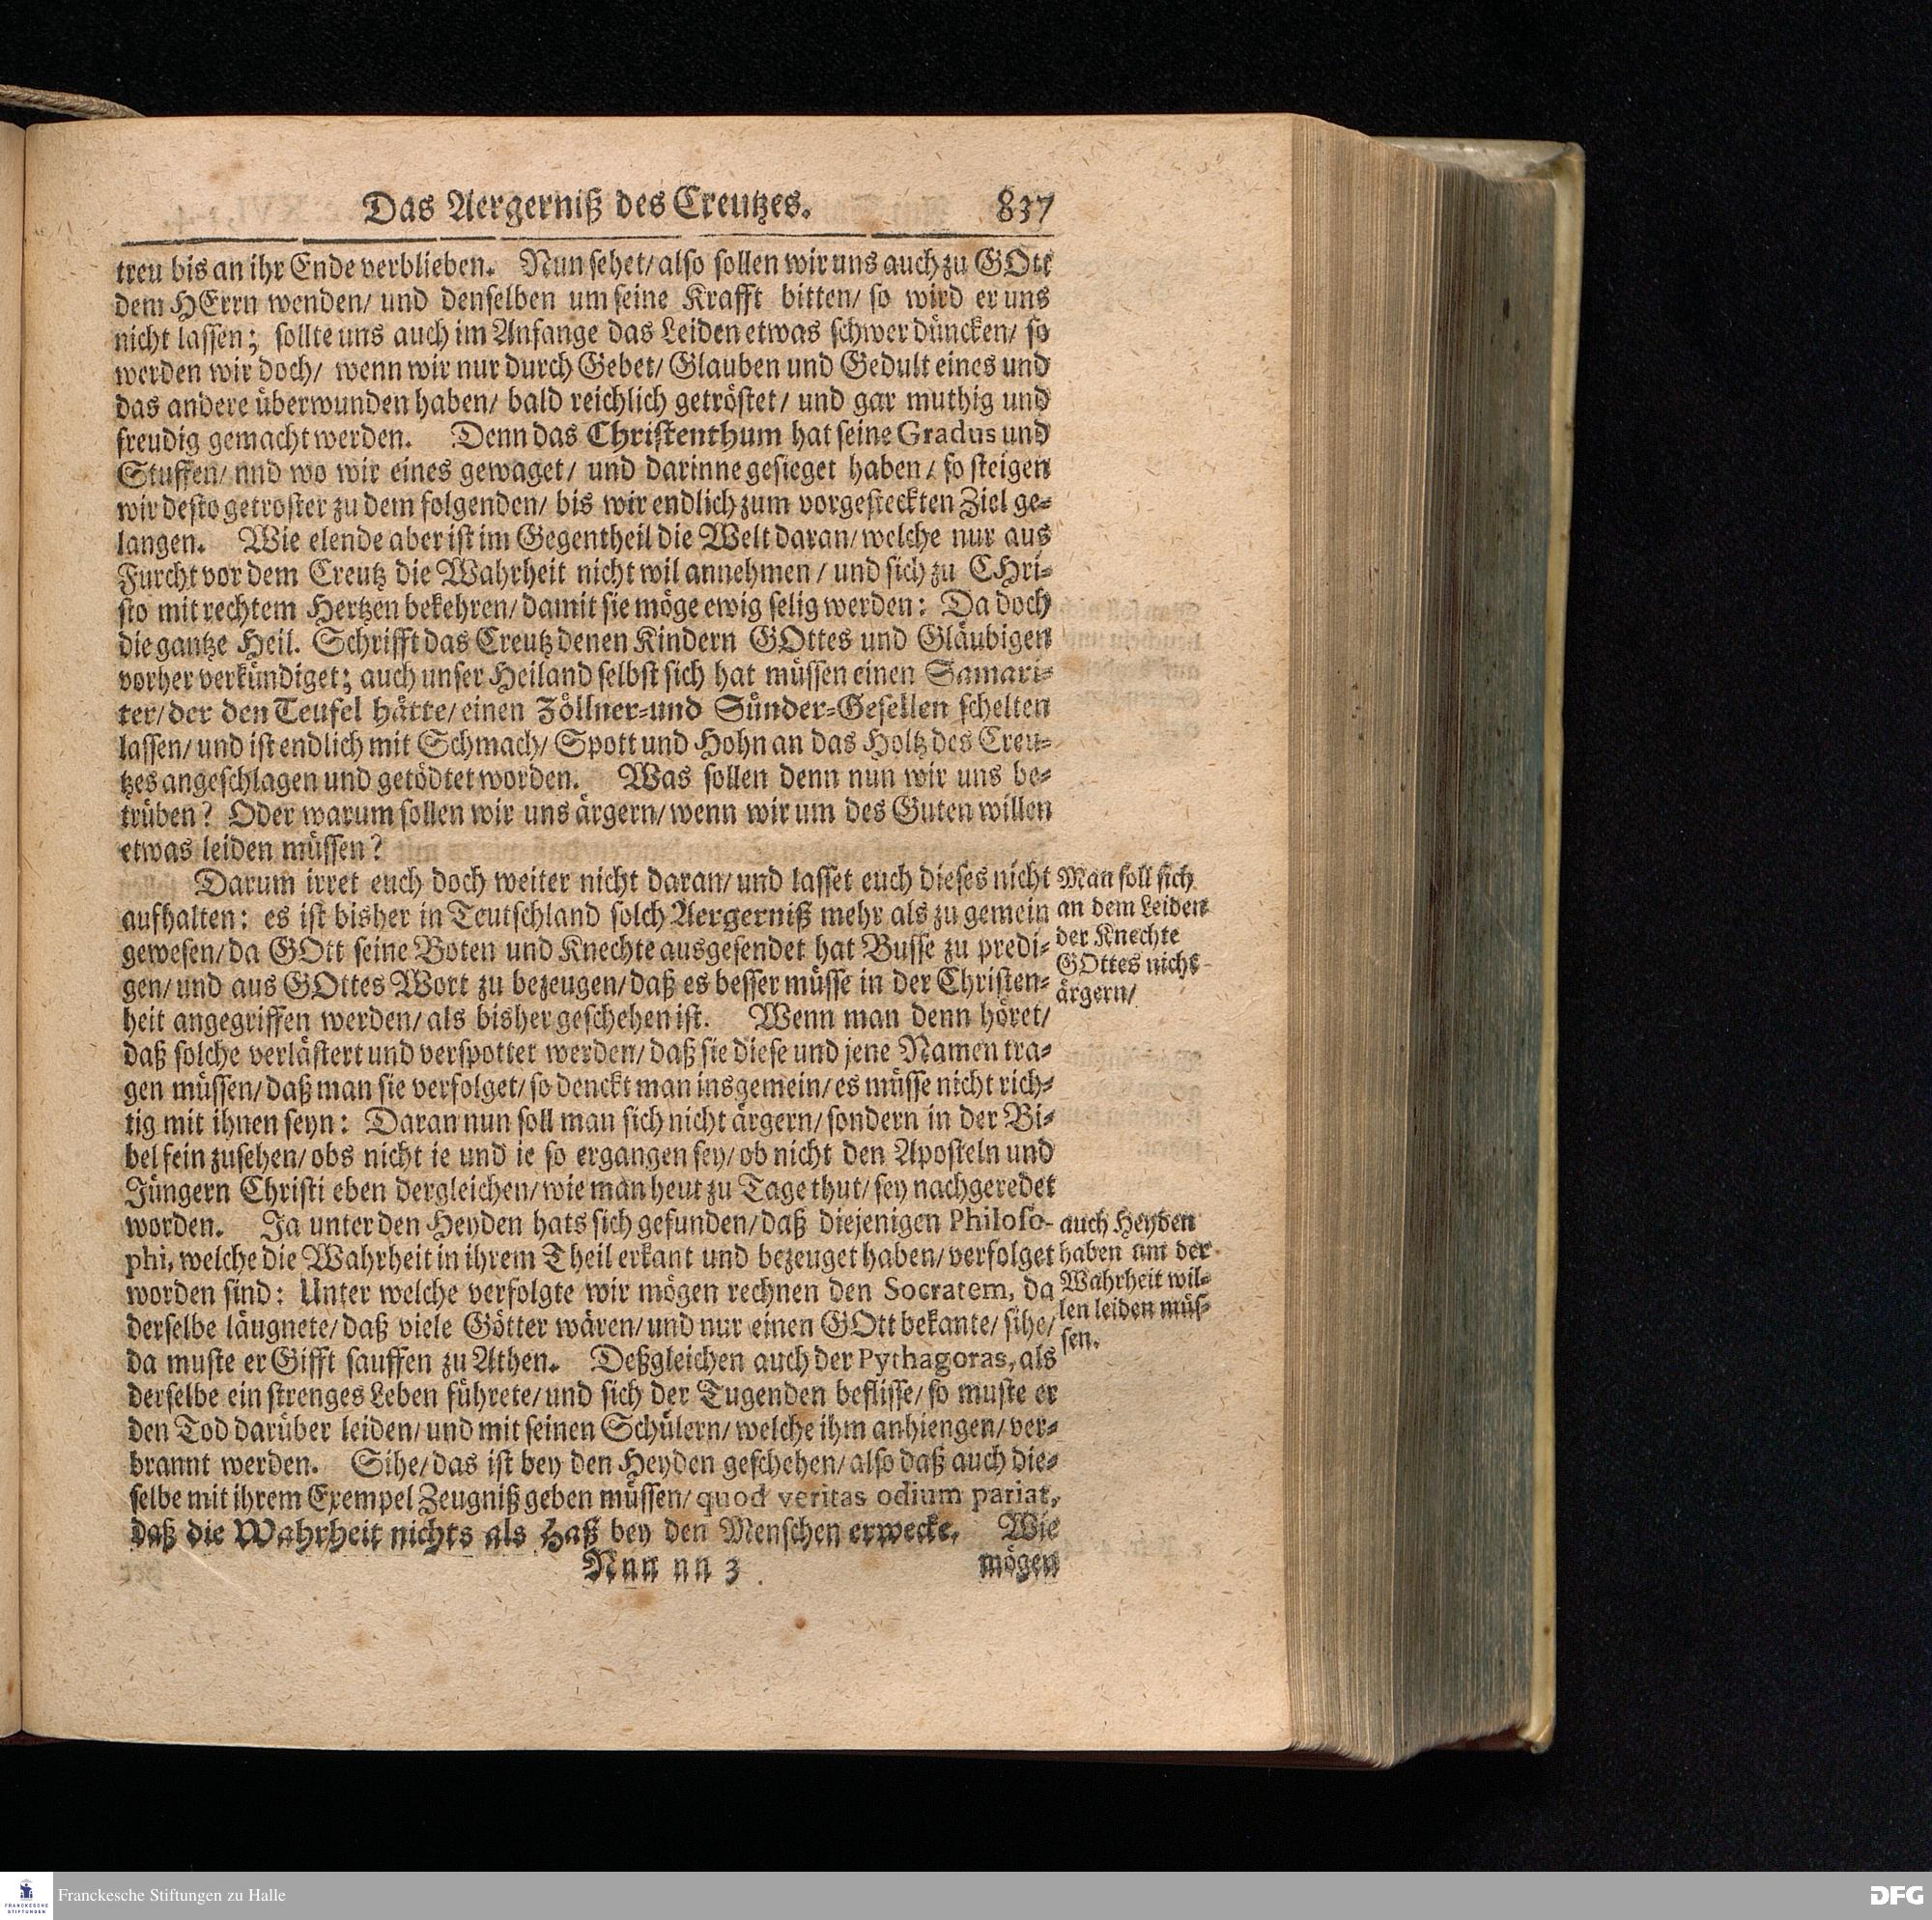 Das Aergerniß des Creutzes. 837
treu bis an ihr Ende verblieben. Nun sehet/ also sollen wir uns auch zu GOtt
dem HErrn wenden/ und denselben um seine Krafft bitten/ so wird er uns
nicht lassen; sollte uns auch im Anfange das Leiden etwas schwer düncken/ so
werden wir doch/ wenn wir nur durch Gebet/ Glauben und Gedult eines und
das andere überwunden haben/ bald reichlich getröstet/ und gar muthig und
freudig gemacht werden. Denn das Christenthum hat seine Gradus und
Stuffen/ nnd wo wir eines gewaget/ und darinne gesieget haben/ so steigen
wir desto getroster zu dem folgenden/ bis wir endlich zum vorgesteckten Ziel ge-
langen. Wie elende aber ist im Gegentheil die Welt daran/ welche nur aus
Furcht vor dem Creutz die Wahrheit nicht wil annehmen/ und sich zu CHri-
sto mit rechtem Hertzen bekehren/ damit sie möge ewig selig werden: Da doch
die gantze Heil. Schrifft das Creutz denen Kindern GOttes und Gläubigen
vorher verkündiget; auch unser Heiland selbst sich hat müssen einen Samari-
ter/ der den Teufel hätte/ einen Zöllner-und Sünder-Gesellen schelten
lassen/ und ist endlich mit Schmach/ Spott und Hohn an das Holtz des Creu-
tzes angeschlagen und getödtet worden. Was sollen denn nun wir uns be-
trüben? Oder warum sollen wir uns ärgern/ wenn wir um des Guten willen
etwas leiden müssen?
Darum irret euch doch weiter nicht daran/ und lasset euch dieses nicht
aufhalten: es ist bisher in Teutschland solch Aergerniß mehr als zu gemein
gewesen/ da GOtt seine Boten und Knechte ausgesendet hat Busse zu predi-
gen/ und aus GOttes Wort zu bezeugen/ daß es besser müsse in der Christen-
heit angegriffen werden/ als bisher geschehen ist. Wenn man denn höret/
daß solche verlästert und verspottet werden/ daß sie diese und jene Namen tra-
gen müssen/ daß man sie verfolget/ so denckt man insgemein/ es müsse nicht rich-
tig mit ihnen seyn: Daran nun soll man sich nicht ärgern/ sondern in der Bi-
bel fein zusehen/ obs nicht ie und ie so ergangen sey/ ob nicht den Aposteln und
Jüngern Christi eben dergleichen/ wie man heut zu Tage thut/ sey nachgeredet
worden. Ja unter den Heyden hats sich gefunden/ daß diejenigen Philoso-
phi, welche die Wahrheit in ihrem Theil erkant und bezeuget haben/ verfolget
worden sind: Unter welche verfolgte wir mögen rechnen den Socratem, da
derselbe läugnete/ daß viele Götter wären/ und nur einen GOtt bekante/ sihe/
da muste er Gifft sauffen zu Athen. Deßgleichen auch der Pythagoras, als
derselbe ein strenges Leben führete/ und sich der Tugenden beflisse/ so muste er
den Tod darüber leiden/ und mit seinen Schülern/ welche ihm anhiengen/ ver-
brannt werden. Sihe/ das ist bey den Heyden geschehen/ also daß auch die-
selbe mit ihrem Exempel Zeugniß geben müssen/ quod veritas odium pariat,
daß die Wahrheit nichts als Haß bey den Menschen erwecke. Wie
Nnn nn 3 mögen
Man soll sich
an dem Leiden
der Knechte
GOttes nicht
ärgern/
auch Heyden
haben um der
Wahrheit wil-
len leiden müs-
sen.
FRANCKESCHE
STIFTUNGEN
Franckesche Stiftungen zu Halle
DFG